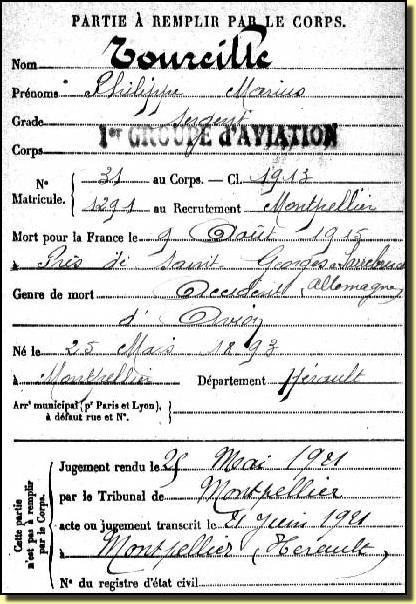 PARTIE À REMPLIR PAR LE CORPS.
Nom Toureille
Prénoms Philippe Marius
Grade Sergent
Corps 1er GROUPE D'AVIATION
N° Matricule. 31 au Corps. — Cl. 1913
1291 au Recrutement Montpellier
Mort pour la France le 9 Août 1915
à Près de Saint Georges Sarrebruck
(Allemagne)
Genre de mort Accident
d'Avion
Né le 25 Mai 1893
à Montpellier Département Hérault
Arrt municipal (pr Paris et Lyon), à défaut rue et N°.
Cette partie n'est pas à remplir par le Corps.
Jugement rendu le 25 Mai 1921
par le Tribunal de Montpellier
acte ou jugement transcrit le 21 Juin 1921
à Montpellier (Hérault)
N° du registre d'état civil